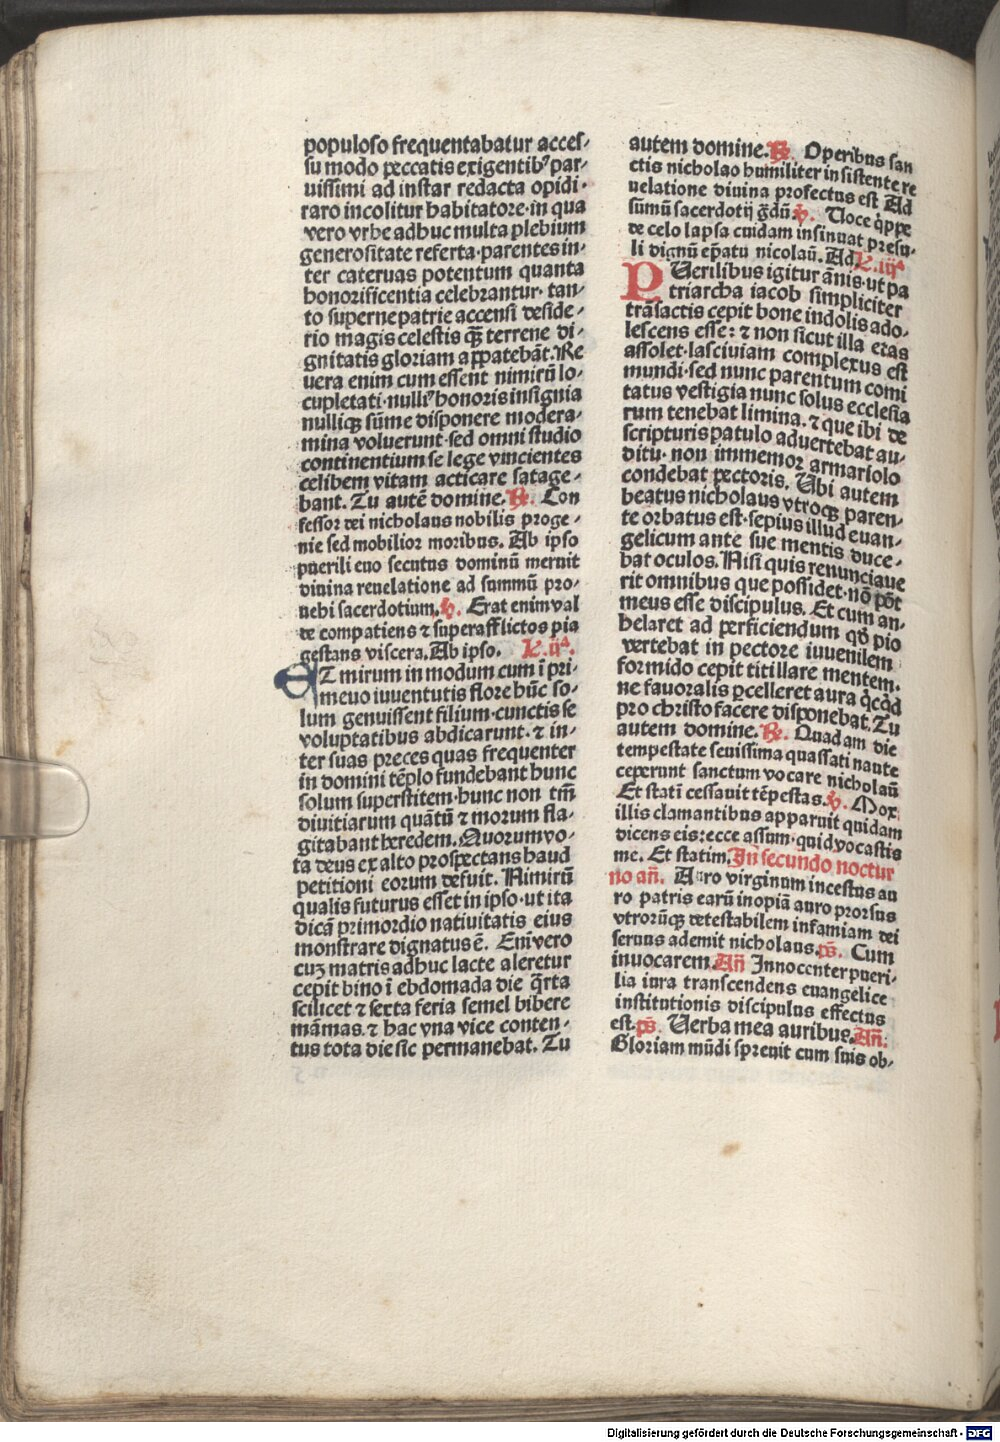 populoso frequentabatur acces-
su modo peccatis exigentibꝰ par-
uissimi ad instar redacta opidi·
raro incolitur habitatore·in qua
vero vrbe adhuc multa plebium
generositate referta·parentes in-
ter cateruas potentum quanta
honorificentia celebrantur· tan-
to superne patrie accensi deside-
rio magis celestis qꝫ̄ terrene di-
gnitatis gloriam aꝑpatebāt. Re
uera enim cum essent nimirū lo-
cupletati·nulliꝰ honoris insignia
nulliqꝫ sūme disponere modera-
mina voluerunt·sed omni studio
continentium se lege vincientes
celibem vitam acticare satage-
bant. Tu autē domine. ℟. Con
fessor dei nicholaus nobilis proge-
nie sed mobilior moribus. Ab ipso
puerili euo secutus dominū meruit
diuina reuelatione ad summū pro-
uehi sacerdotium. ℣. Erat enim val
de compatiens ⁊ super afflictos pia
gestans viscera. Ab ipso. L. ijª.
ET mirum in modum cum ī pri-
meuo iuuentutis flore hūc so-
lum genuissent filium·cunctis se
voluptatibus abdicarunt· ⁊ in-
ter suas preces quas frequenter
in domini tēplo fundebant hunc
solum superstitem·hunc non tm̄
diuitiarum quātū ⁊ morum fla-
gitabant heredem. Quorum vo-
ta deus ex alto prospectans haud
petitioni eorum defuit. Nimirū
qualis futurus esset in ipso·ut ita
dicā primordio natiuitatis eius
monstrare dignatus ē. Enīvero
cuꝫ matris adhuc lacte aleretur
cepit bino ī ebdomada die q̄rta
scilicet ⁊ sexta feria semel bibere
māmas. ⁊ hac vna vice conten-
tus tota die sic permanebat. Tu
autem domine. ℟. Operibus san
ctis nicholao humiliter insistente re
uelatione diuina profectus est Ad
sūmū sacerdotij g̅dū. ℣. Uoce q̇ppe
de celo lapsa cuidam insinuat presu-
li dignū ep̄atu nicolaū. Ad. L. iijª
PUerilibus igitur ānis·ut pa
triarcha iacob simpliciter
trāsactis cepit bone indolis ado-
lescens esse: ⁊ non sicut illa etas
assolet·lasciuiam complexus est
mundi·sed nunc parentum comi
tatus vestigia nunc solus ecclesia
rum tenebat limina. ⁊ que ibi de
scripturis patulo aduertebat au-
ditu· non immemor armariolo
condebat pectoris. Ubi autem
beatus nicholaus vtroqꝫ paren-
te orbatus est·sepius illud euan-
gelicum ante sue mentis duce-
bat oculos. Nisi quis renunciaue
rit omnibus que possidet·nō pōt
meus esse discipulus. Et cum an-
helaret ad perficiendum qd̄ pio
vertebat in pectore iuuenilem
formido cepit titillare mentem·
ne fauoralis ꝑcelleret aura q̇cq̇d
pro christo facere disponebat. Tu
autem domine. ℟. Quadam die
tempestate seuissima quassati naute
ceperunt sanctum vocare nicholaū
Et statī cessauit tēpestas. ℣. Mox
illis clamantibus apparuit quidam
dicens eis:ecce assum·quid vocastis
me. Et statim. In secundo noctur
no an̄. Auro virginum incestus au
ro patris earū inopiā auro prorsus
vtrorūqꝫ detestabilem infamiam dei
seruus ademit nicholaus. ps̄. Cum
inuocarem. An̄ Innocenter pueri-
lia iura transcendens euangelice
institutionis discipulus effectus
est. ps̄. Uerba mea auribus. An̄.
Gloriam mūdi spreuit cum suis ob-
Digitalisierung gefördert durch die Deutsche Forschungsgemeinschaft - DFG